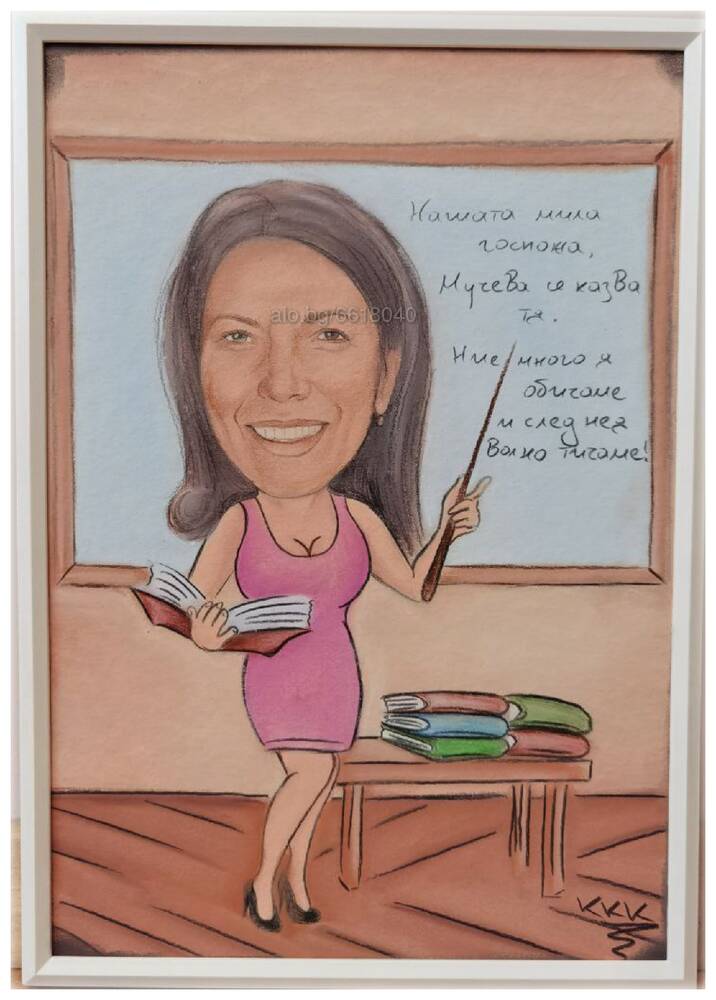 Нашата мила
госпожа,
Мучева се казва
тя.
alo.bg/6618040
Ние много я
обичаме
и след нея
Волно тичаме!
KKK